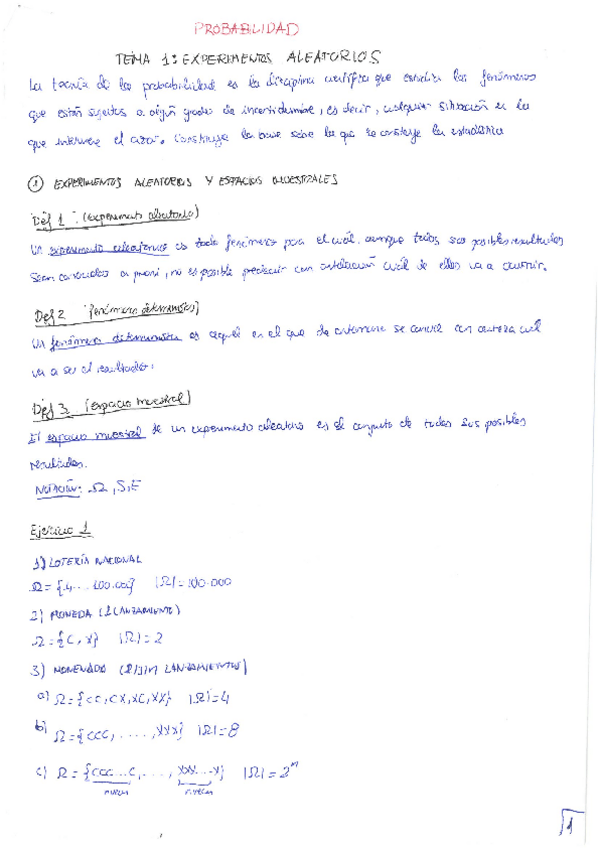 PROBABILIDAD
TEMA 1: EXPERIMENTOS ALEATORIOS
La teoría de la probabilidad es la disciplina científica que estudia los fenómenos
que están sujetos a algún grado de incertidumbre, es decir, cualquier situación en la
que interviene el azar. Constituye la base sobre la que se construye la estadística
① EXPERIMENTOS ALEATORIOS Y ESPACIOS MUESTRALES
Def 1: (experimento aleatorio)
Un experimento aleatorio es todo fenómeno para el cuál, aunque todos sus posibles resultados
sean conocidos a priori, no es posible predecir con antelación cuál de ellos va a ocurrir.
Def 2 (fenómeno determinista)
Un fenómeno determinista es aquel en el que de antemano se conoce con certeza cuál
va a ser el resultado.
Def 3. (espacio muestral)
El espacio muestral de un experimento aleatorio es el conjunto de todos sus posibles
resultados.
NOTACIÓN: Ω, S, E
Ejercicio 1
1) LOTERÍA NACIONAL
Ω = {1... 100.000} |Ω| = 100.000
2) MONEDA (1 LANZAMIENTO)
Ω = {C, X} |Ω| = 2
3) LANZAMIENTOS)
a) Ω = {CC, CX, XC, XX} |Ω| = 4
b) Ω = {CCC, ....., XXX} |Ω| = 8
c) Ω = {CCC...C, ...., XXX...X} |Ω| = 2ⁿ
n veces n veces
1